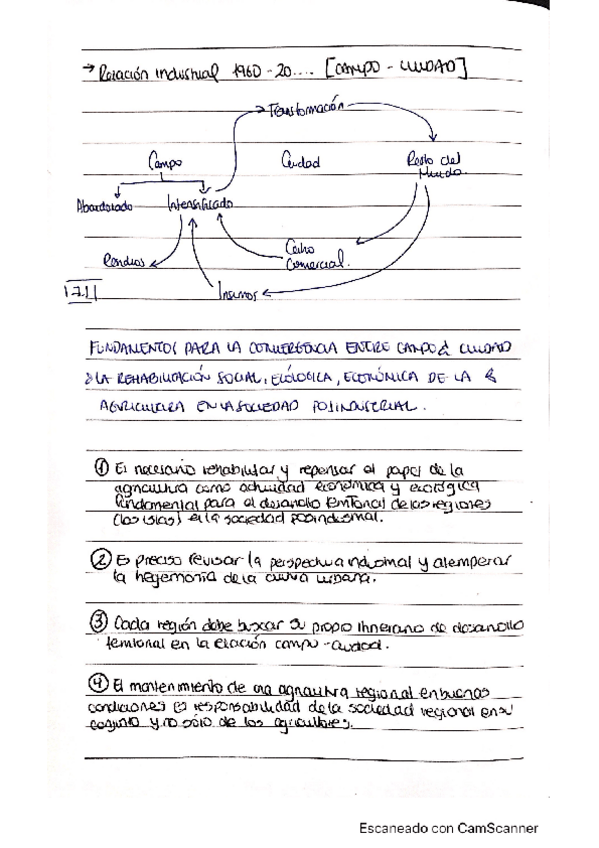 → Relación industrial 1960 - 20.... [CAMPO - CIUDAD]
Transformación
Campo
Ciudad
Resto del
Mundo.
Abandonado
Intensificado
Residuos
Centro
Comercial.
Insumos
FUNDAMENTOS PARA LA CONVERGENCIA ENTRE CAMPO & CIUDAD
LA REHABILITACIÓN SOCIAL, ECOLÓGICA, ECONÓMICA DE LA
AGRICULTURA EN LA SOCIEDAD POSINDUSTRIAL.
① Es necesario rehabilitar y repensar el papel de la
agricultura como actividad económica y ecológica
fundamental para el desarrollo territorial de las regiones
(las islas) en la sociedad posindustrial.
② Es preciso revisar la perspectiva industrial y atemperar
la hegemonía de la cultura urbana.
③ Cada región debe buscar su propio itinerario de desarrollo
territorial en la relación campo-ciudad.
④ El mantenimiento de una agricultura regional en buenas
condiciones es responsabilidad de la sociedad regional en su
conjunto y no sólo de los agricultores.
Escaneado con CamScanner